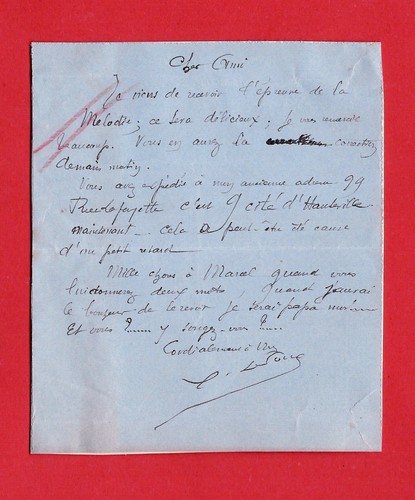 Cher Ami
Je viens de recevoir l'épreuve de la
Mélodie; ce sera délicieux; Je vous remercie
beaucoup. Vous en aurez la correction
demain matin.
Vous avez expédié à mon ancienne adresse 99
Rue Lafayette c'est 9 cité d'Hauteville
maintenant. cela a peut-être été cause
d'un petit retard
Mille choses à Marcel quand vous
lui donnerez deux mots, Quand j'aurai
le bonheur de le revoir je serai papa
Et vous ?...... y songez-vous ?....
Cordialement à Vous